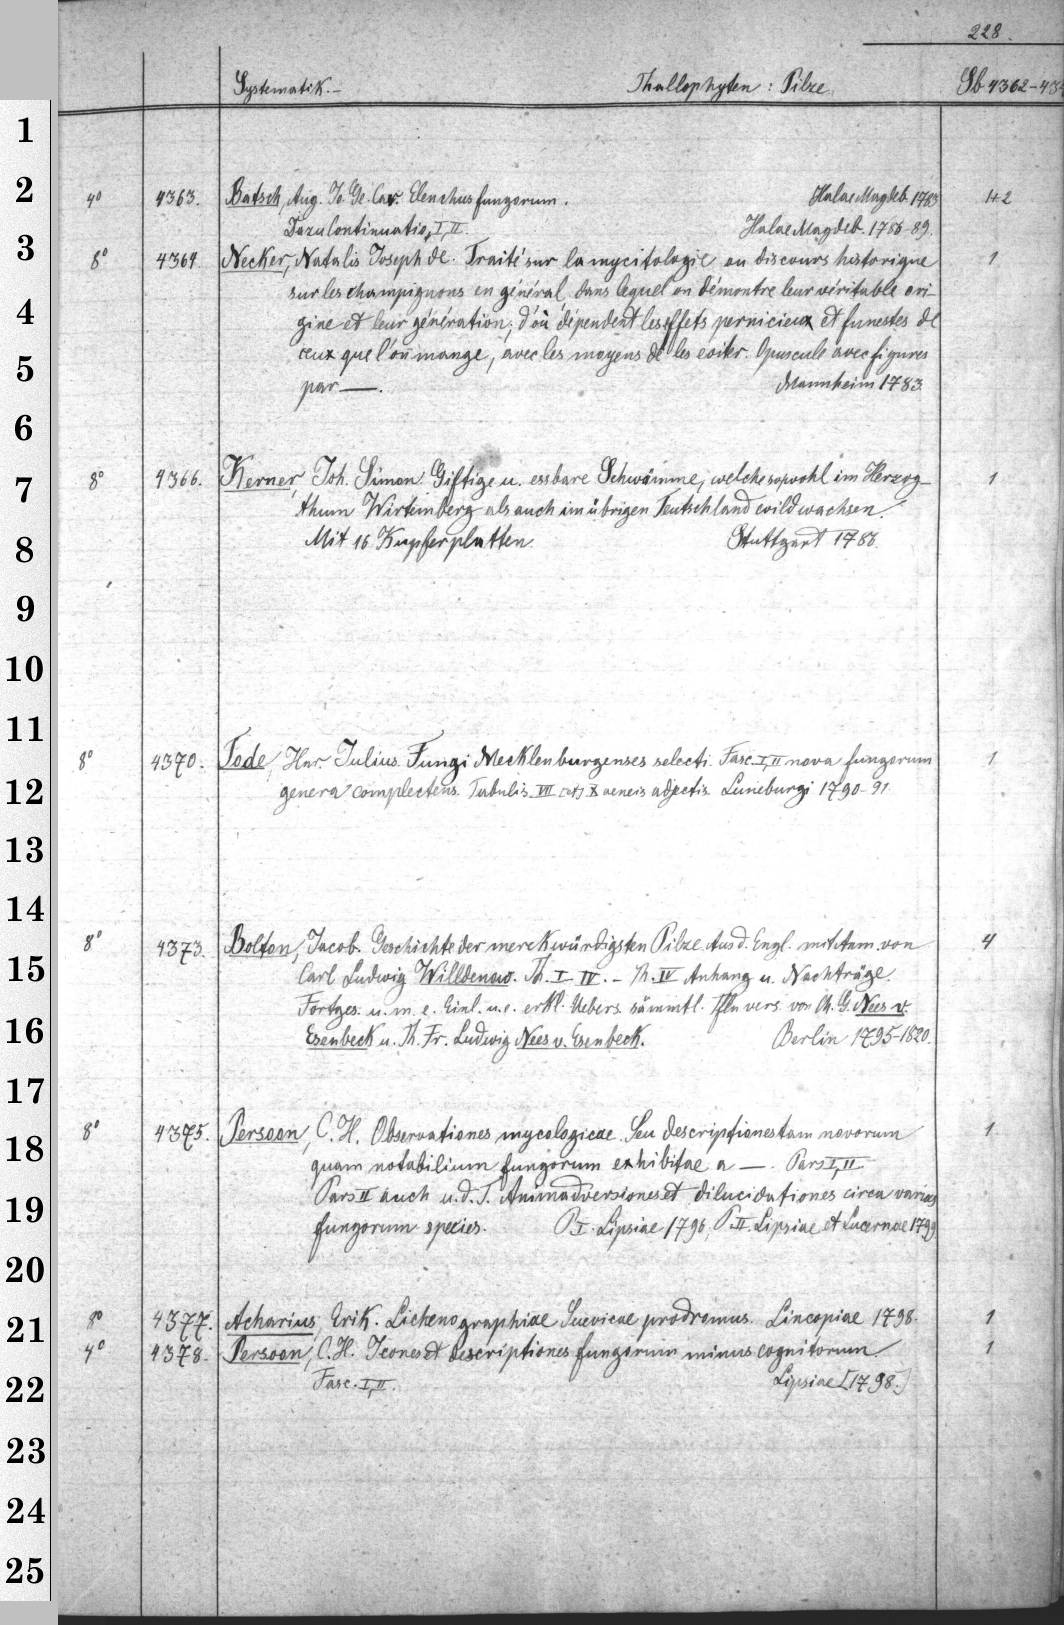 228.
Systematik.— Thallophyten: Pilze. Sb 4362-43
1
2
3
4
5
6
7
8
9
10
11
12
13
14
15
16
17
18
19
20
21
22
23
24
25
4° 4363. Batsch, Aug. Jo. Ge. Car. Elenchus fungorum. Halae Magdeb. 1783 1+2
Dazu Continuatio I, II. Halae Magdeb. 1786-89.
8° 4364. Necker, Natalis Joseph de. Traité sur la mycitologie ou discours historique 1
sur les champignons en général, dans lequel on démontre leur véritable ori-
gine et leur génération; d'où dépendent les effets pernicieux et funestes de
ceux que l'on mange, avec les moyens de les éviter. Opuscule avec figures
par —. Mannheim 1783.
8° 4366. Kerner, Joh. Simon. Giftige u. essbare Schwämme, welche sowohl im Herzog- 1
thum Wirtemberg als auch im übrigen Teutschland wild wachsen.
Mit 16 Kupferplatten. Stuttgart 1786.
8° 4370. Tode, Hnr. Julius. Fungi Mecklenburgenses selecti. Fasc. I, II nova fungorum 1
genera complectens. Tabulis VII [et] X aeneis adjectis. Luneburgi 1790-91
8° 4373. Bolton, Jacob. Geschichte der merckwürdigsten Pilze. Aus d. Engl. mit Anm. von 4
Carl Ludwig Willdenow. Th. I-IV. — Th. IV Anhang u. Nachträge.
Fortges. u. m. e. Einl. u. e. erkl. Uebers. sämmtl. Tfln vers. von Ch. G. Nees v.
Esenbeck u. Th. Fr. Ludwig Nees v. Esenbeck. Berlin 1795-1820.
8° 4375. Persoon, C. H. Observationes mycologicae. Seu descriptiones tam novorum 1
quam notabilium fungorum exhibitae a —. Pars I, II
Pars II auch u. d. T. Animadversiones et dilucidationes circa varias
fungorum species. P. I. Lipsiae 1796, P. II. Lipsiae et Lucernae 1799.
8° 4377. Acharius, Erik. Lichenographiae Suevicae prodromus. Lincopiae 1798. 1
4° 4378. Persoon, C. H. Icones et descriptiones fungorum minus cognitorum 1
Fasc. I, II. Lipsiae [1798.]